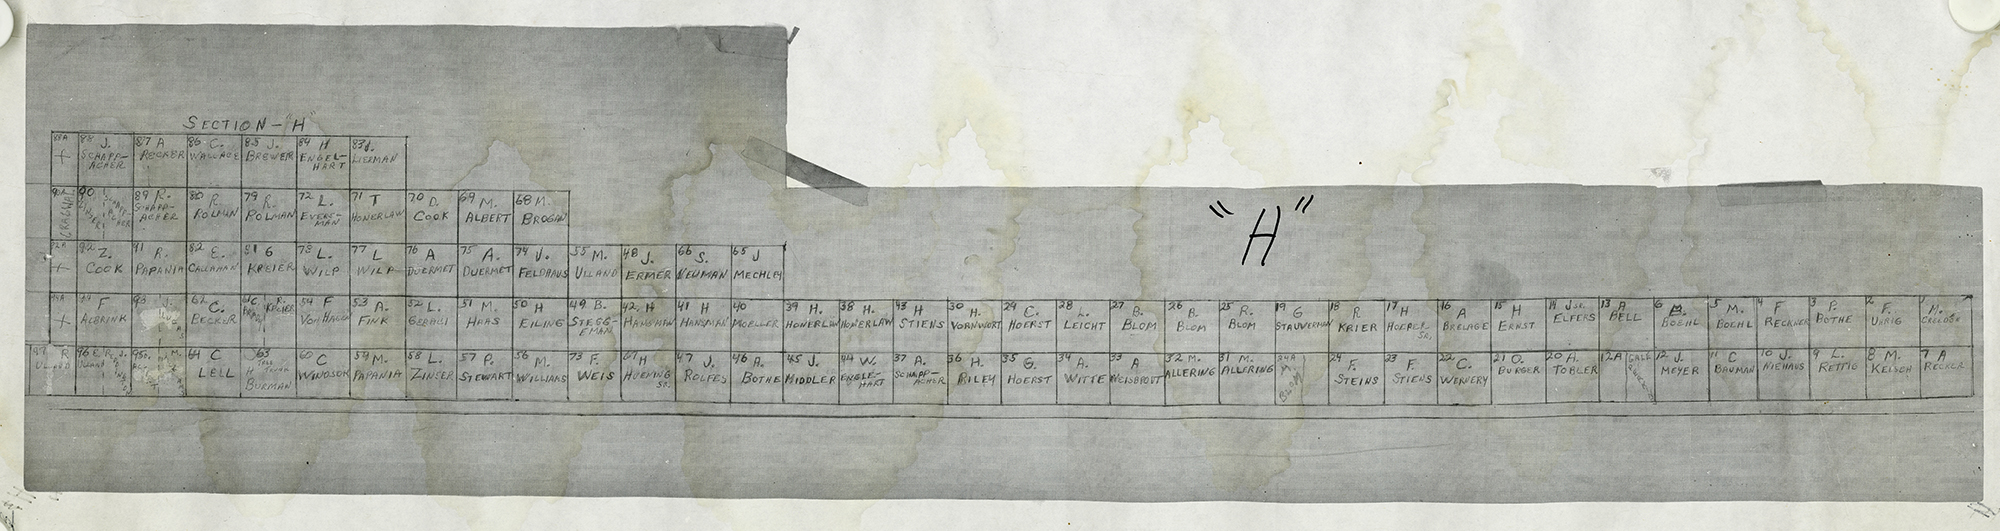 SECTION-"H"
"H"
88A + 88 J. SCHAPP-ACHER 87 A RECKER 86 C. WALLACE 85 J. BREWER 84 H ENGEL-HART 83 J. LIERMAN
90A 90 89 R. SCHAPP-ACHER 80 R. POLMAN 79 R. POLMAN 72 L. EVERS-MAN 71 T HONERLAW 70 D. COOK 69 M. ALBERT 68 M. BROGAN
92A + 92 Z. COOK 91 R. PAPANIA 82 E. CALLAHAN 81 G KREIER 78 L. WILP 77 L WILP 76 A DUERMET 75 A. DUERMET 74 J. FELDHAUS 55 M. ULLAND 48 J. ERMER 66 S. NEUMAN 65 J MECHLEY
94A + 94 F ALBRINK 93 J. 62 C. BECKER 61 R. KREIER 54 F VON HAGEN 53 A. FINK 52 L. GERACI 51 M. HAAS 50 H EILING 49 B. STEGG-EMAN 42 H HANSMAN 41 H HANSMAN 40 MOELLER 39 H. HONERLAW 38 H. HONERLAW 43 H STIENS 30 H. VORNWORT 29 C. HOERST 28 L. LEICHT 27 B. BLOM 26 B. BLOM 25 R. BLOM 19 G STAUVERMAN 18 R KRIER 17 H HOERER SR. 16 A BRELAGE 15 H ERNST 14 J SR. ELFERS 13 A BELL 6 B. BOEHL 5 M. BOEHL 4 F RECKNER 3 P. BOTHE 2 F. UHRIG 1 M.
97 R ULLAND 96 E 95 64 C LELL 63 H BURMAN 60 C WINDSOR 59 M. PAPANIA 58 L. ZINSER 57 P. STEWART 56 M. WILLIAMS 73 F. WEIS 67 H HUENING SR. 47 J. ROLFES 46 A. BOTHE 45 J. MIDDLER 44 W. ENGLE-HART 37 A. SCHAPP-ACHER 36 H. RILEY 35 G. HOERST 34 A. WITTE 33 A WEISBROTT 32 M. ALLERING 31 M. ALLERING 24A M BLOM 24 F. STEINS 23 F STIENS 22 C. WERNERY 21 O. BURGER 20 H. TOBLER 12A 12 J. MEYER 11 C BAUMAN 10 J. NIEHAUS 9 L. RETTIG 8 M. KELSCH 7 A RECKER